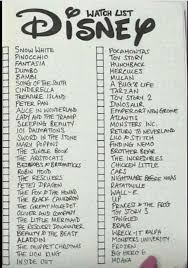 WATCH LIST
DISNEY
SNOW WHITE
PINOCCHIO
FANTASIA
DUMBO
BAMBI
SONG OF THE SOUTH
CINDERELLA
TREASURE ISLAND
PETER PAN
ALICE IN WONDERLAND
LADY AND THE TRAMP
SLEEPING BEAUTY
101 DALMATIONS
SWORD IN THE STONE
MARY POPPINS
THE JUNGLE BOOK
THE ARISTOCATS
BEDKNOBS & BROOMSTICKS
ROBIN HOOD
THE RESCUERS
PETES DRAGON
THE FOX & THE HOUND
THE BLACK CAULDRON
THE GREAT MOUSE DET
OLIVER AND COMPANY
THE LITTLE MERMAID
THE RESCUERS DOWNUNDER
BEAUTY & THE BEAST
ALADDIN
THE MUPPET CHRISTMAS
THE LION KING
INSIDE OUT
POCAHONTAS
TOY STORY
HUNCHBACK
HERCULES
MULAN
A BUG'S LIFE
TARZAN
TOY STORY 2
DINOSAUR
EMPERORS NEW GROOVE
ATLANTIS
MONSTERS INC.
RETURN TO NEVERLAND
LILO & STITCH
FINDING NEMO
BROTHER BEAR
THE INCREDIBLES
CHICKEN LITTLE
CARS
NIGHTMARE BEFORE XMAS
RATATOUILLE
WALL-E
UP
PRINCESS & THE FROG
TOY STORY 3
TANGLED
BRAVE
WRECK-IT RALPH
MONSTERS UNIVERSITY
FROZEN
BIG HERO 6
MOANA